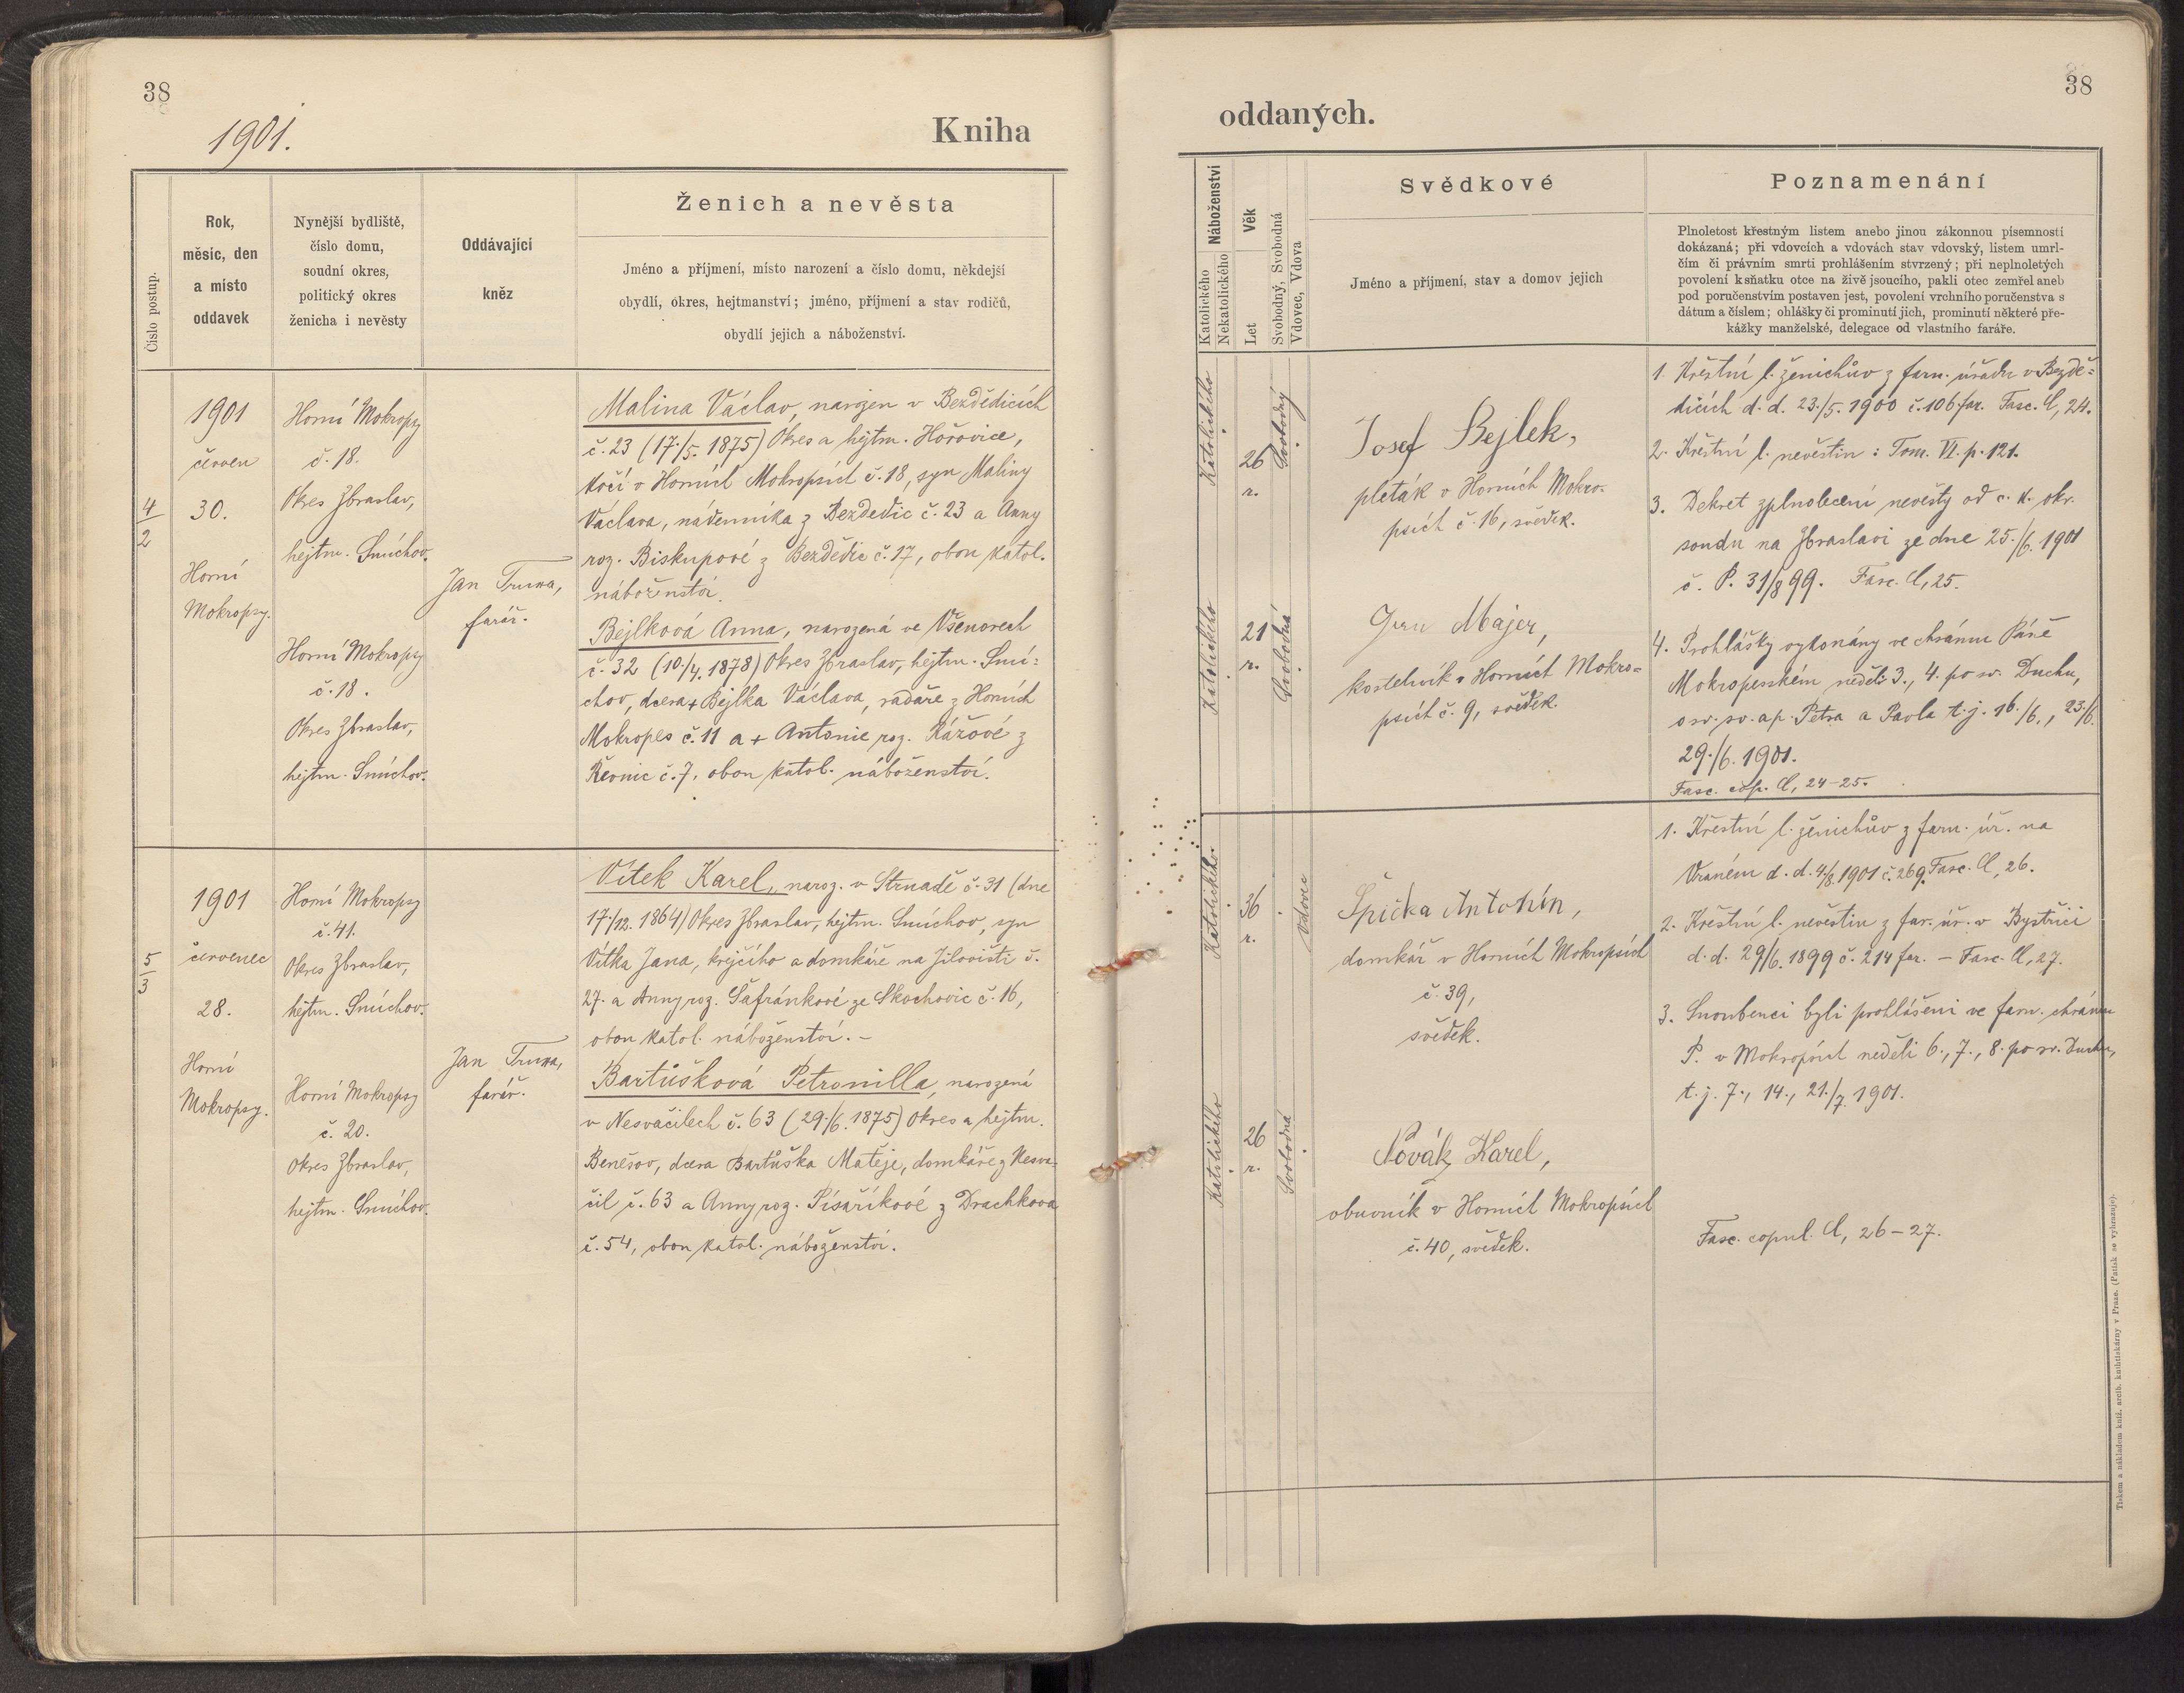 38
1901.
Kniha
Číslo postup.
Rok,
měsíc, den
a místo
oddavek
Nynější bydliště,
číslo domu,
soudní okres,
politický okres
ženicha i nevěsty
Oddávající
kněz
Ženich a nevěsta
Jméno a příjmení, místo narození a číslo domu, někdejší
obydlí, okres, hejtmanství; jméno, příjmení a stav rodičů,
obydlí jejich a náboženství.
4/2
1901
červen
30.
Horní
Mokropsy.
Horní Mokropsy
č. 18.
Okres Zbraslav,
hejtm. Smíchov.
Horní Mokropsy
č. 18.
Okres Zbraslav,
hejtm. Smíchov.
Jan
farář.
Malina Václav, narozen v Bezdědicích
č. 23 (17./5. 1875) Okres a hejtm. Hořovice,
kočí v Horních Mokropsích č. 18, syn Maliny
Václava, nádenníka z Bezdědic č. 23 a Anny
roz. Biskupové z Bezdědic č. 17, obou katol.
náboženství.
Bejlková Anna, narozená ve Všenorech
č. 32 (10./4. 1878) Okres Zbraslav, hejtm. Smí-
chov, dcera + Bejlka Václava, z Horních
Mokropes č. 11 a + Antonie roz. Kážové z
Řevnic č. 7, obou katol. náboženství.
5/3
1901
červenec
28.
Horní
Mokropsy.
Horní Mokropsy
č. 41.
Okres Zbraslav,
hejtm. Smíchov.
Horní Mokropsy
č. 20.
Okres Zbraslav,
hejtm. Smíchov.
Jan
farář.
Vítek Karel, naroz. v Strnadě č. 31 (dne
17./12. 1864) Okres Zbraslav, hejtm. Smíchov, syn
Vítka Jana, krejčího a domkáře na Jílovišti č.
27. a Anny roz. Šafránkové ze Skochovic č. 16,
obou katol. náboženství. –
Bartůšková Petronilla, narozená
v Nesvačilech č. 63 (29./6. 1875) Okres a hejtm.
Benešov, dcera Bartůška Matěje, domkáře z Nesva-
čil č. 63 a Anny roz. Písaříkové z Drachkova
č. 54, obou katol. náboženství.
38
oddaných.
Náboženství
Katolického
Nekatolického
Věk
Let
Svobodný, Svobodná
Vdovec, Vdova
Svědkové
Jméno a příjmení, stav a domov jejich
Poznamenání
Plnoletost křestným listem anebo jinou zákonnou písemností
dokázaná; při vdovcích a vdovách stav vdovský, listem umrl-
čím či právním smrti prohlášením stvrzený; při neplnoletých
povolení k sňatku otce na živě jsoucího, pakli otec zemřel aneb
pod poručenstvím postaven jest, povolení vrchního poručenstva s
dátum a číslem; ohlášky či prominutí jich, prominutí některé pře-
kážky manželské, delegace od vlastního faráře.
Katolického
26
r.
Svobodný
Katolického
21
r.
Svobodná
Josef Bejlek,
pleták v Horních Mokro-
psích č. 16, svědek.
Jan Majer,
kostelník v Horních Mokro-
psích č. 9, svědek.
1. Křestní l. ženichův z farn. úřadu v Bezdě-
dicích d. d. 23./5. 1900 č. 106 far. Fasc. A, 24.
2. Křestní l. nevěstin: Tom. VI. p. 121.
3. Dekret zplnoletění nevěsty od c. k. okr.
soudu na Zbraslavi ze dne 25./6. 1901
č. P. 31/8 99. Fasc. A, 25.
4. Prohlášky vykonány ve chrámu Páně
Mokropesském neděli 3., 4. po sv. Duchu,
o sv. sv. ap. Petra a Pavla t. j. 16./6., 23./6.
29./6. 1901.
Fasc. cop. A, 24–25.
Katolického
36
r.
Vdovec
Katolického
26
r.
Svobodná
Špička Antonín,
domkář v Horních Mokropsích
č. 39,
svědek.
Novák Karel,
obuvník v Horních Mokropsích
č. 40, svědek.
1. Křestní l. ženichův z farn. úř. na
Vraném d. d. 4/8 1901 č. 269. Fasc. A, 26.
2. Křestní l. nevěstin z far. úř. v Bystřici
d. d. 29/6. 1899 č. 214 far. – Fasc. A, 27.
3. Snoubenci byli prohlášeni ve farn. chrámu
P. v Mokropsích neděli 6., 7., 8. po sv. Duchu,
t. j. 7., 14., 21./7. 1901.
Fasc. copul. A, 26–27.
Tiskem a nákladem kníž. arcib. knihtiskárny v Praze. (Patisk se vyhrazuje).